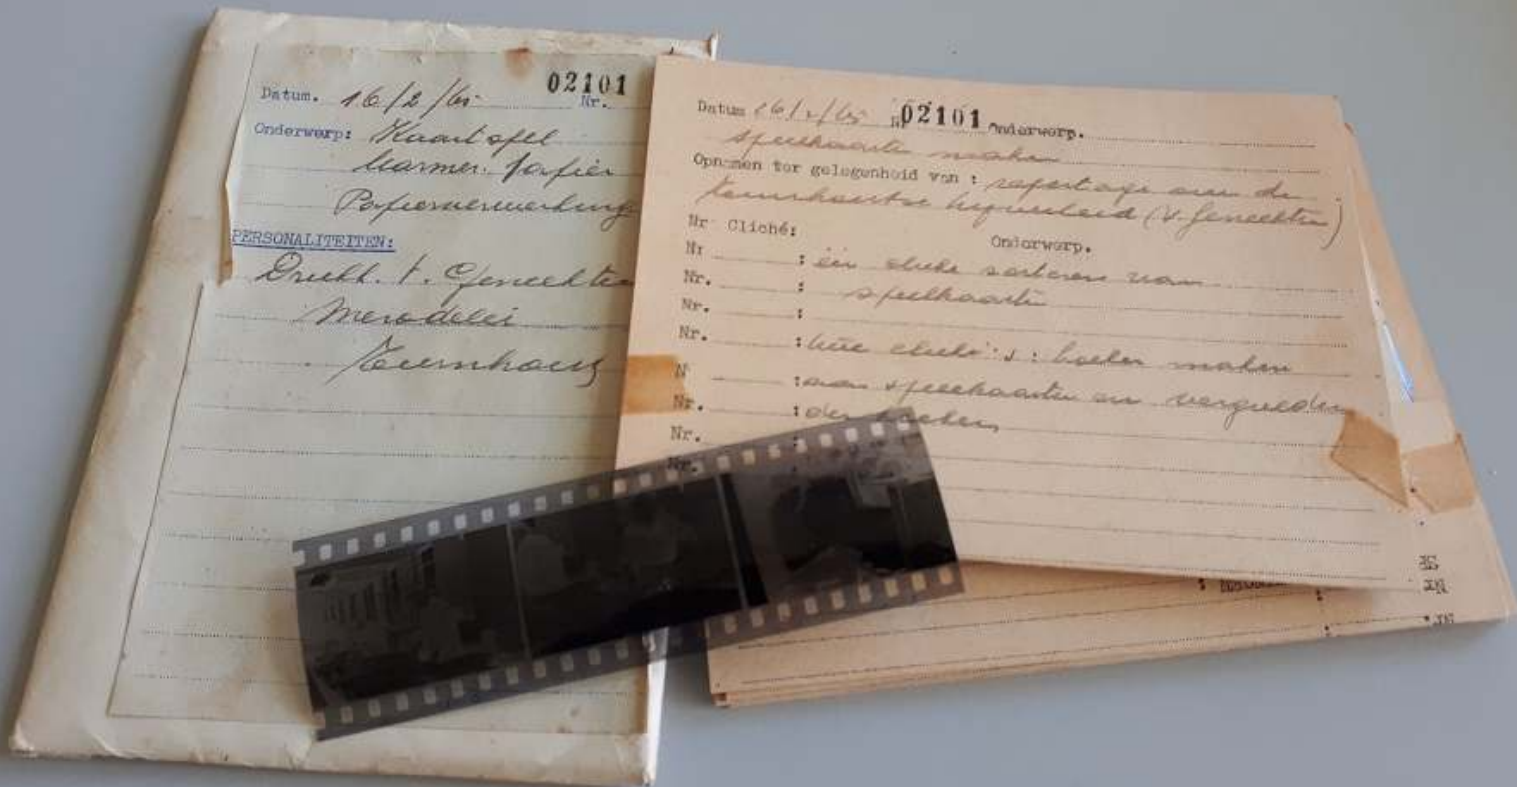 02101
Datum. 16/2/65 Nr.
Onderwerp: Kaartspel
Marmer. papier
Papierverwerking
PERSONALITEITEN:
Drukk. v. Genechten
Merodelei
Turnhout
Datum 16/2/65 Nr 02101 Onderwerp.
speelkaarten maken
Opnamen ter gelegenheid van : reportage over de
Turnhoutse nijverheid (v. Genechten)
Nr Cliché: Onderwerp.
Nr : één cliché sorteren van
Nr. : speelkaarten
Nr. :
Nr. : cliché's : hoeken maken
N : aan speelkaarten en vergulden
Nr. : der hoeken
Nr. :
Nr. :